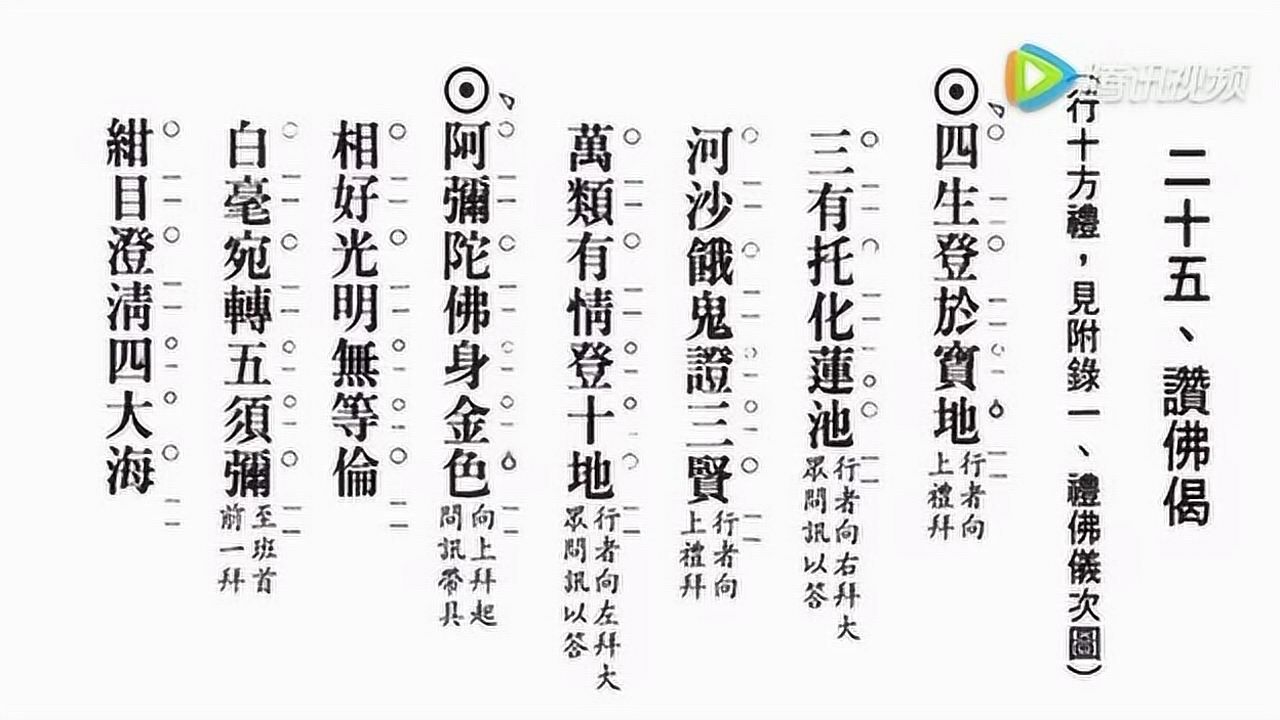 二十五、讚佛偈
（行十方禮，見附錄一、禮佛儀次圖）
四生登於寶地
行者向
上禮拜
三有托化蓮池
行者向右拜大
眾問訊以答
河沙餓鬼證三賢
行者向
上禮拜
萬類有情登十地
行者向左拜大
眾問訊以答
阿彌陀佛身金色
向上拜起
問訊帶具
相好光明無等倫
白毫宛轉五須彌
至班首
前一拜
紺目澄淸四大海
腾讯视频